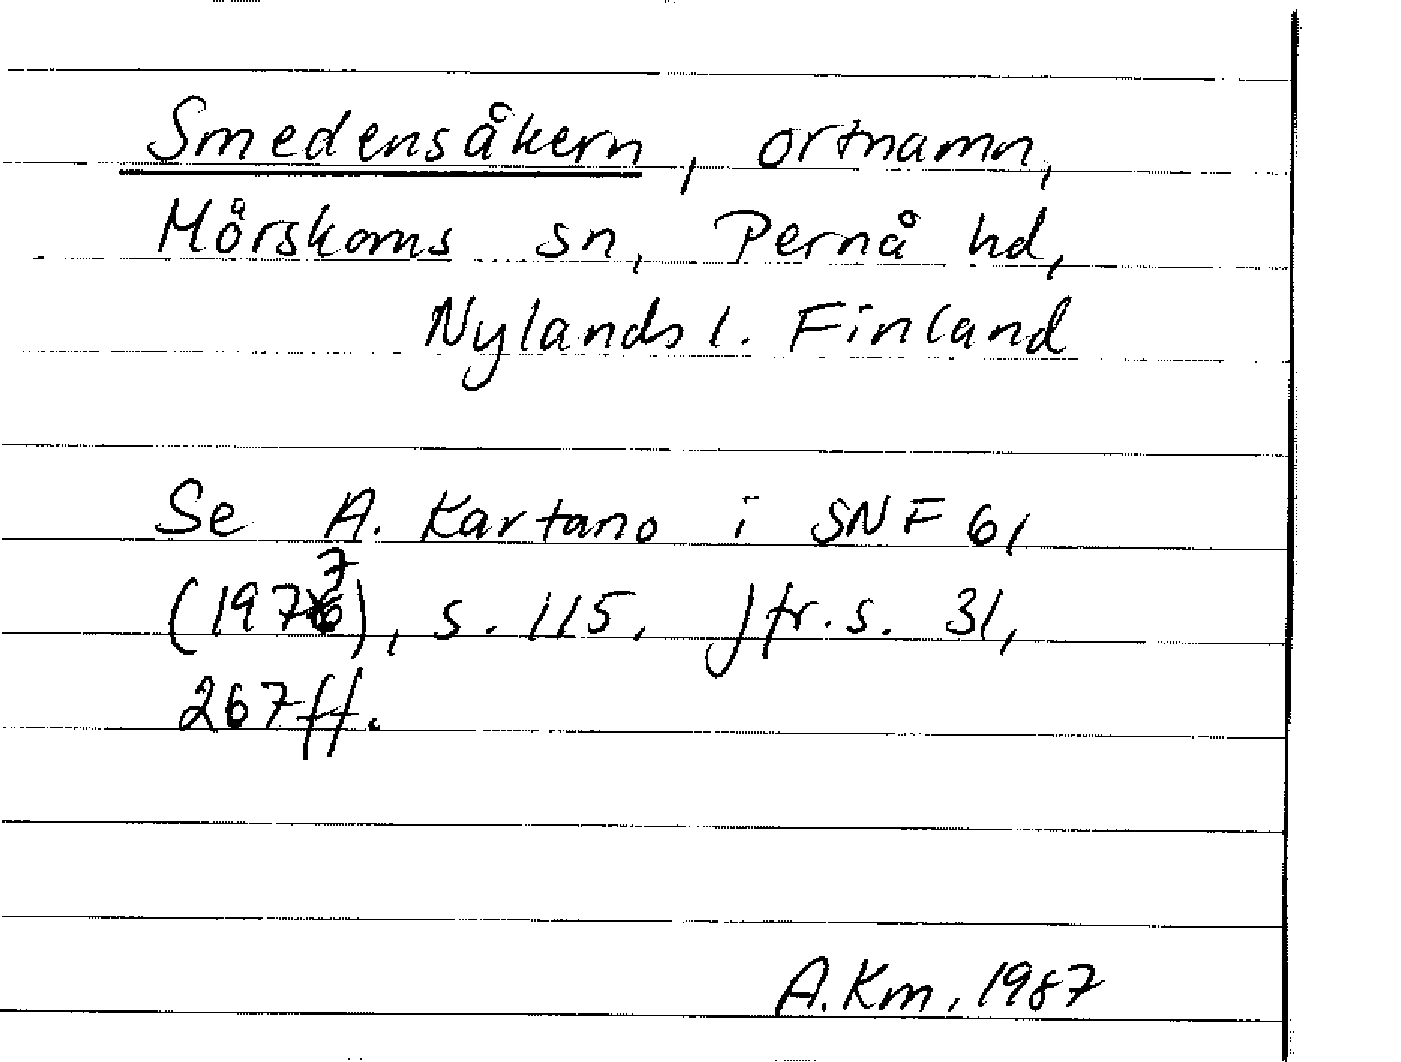 Smedensåkern, ortnamn,
Mörskoms sn, Pernå hd,
Nylands l. Finland
Se A. Kartano i SNF 61
(1977), s. 115. Jfr. s. 31,
267 ff.
A. Km, 1987